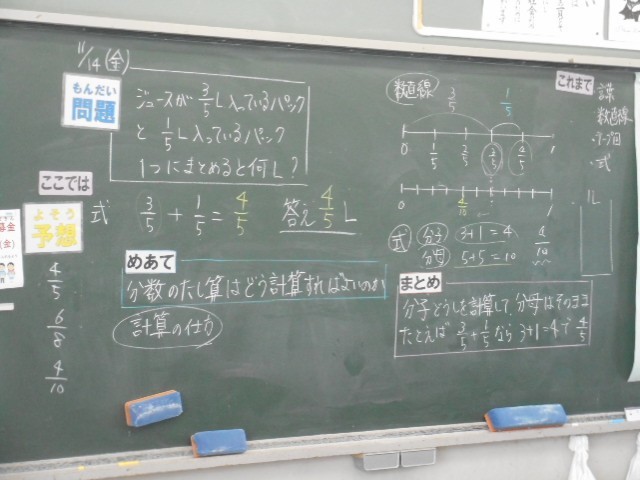 11/14(金)
もんだい
問題
ジュースが 3/5 L 入っているパック
と 1/5 L 入っているパック
1つにまとめると何L?
ここでは
よそう
予想
4/5
6/8
4/10
式 3/5 + 1/5 = 4/5 答え 4/5 L
めあて
分数のたし算はどう計算すればよいのか
計算の仕方
数直線 3/5 1/5
0 1/5 2/5 3/5 4/5 1
0 4/10 1
式 分子 3+1=4 4/10
分母 5+5=10
まとめ
分子どうしを計算して、分母はそのママ
たとえば 3/5 + 1/5 なら 3+1=4で 4/5
これまで
数直線
・式
1L
募金
(金)